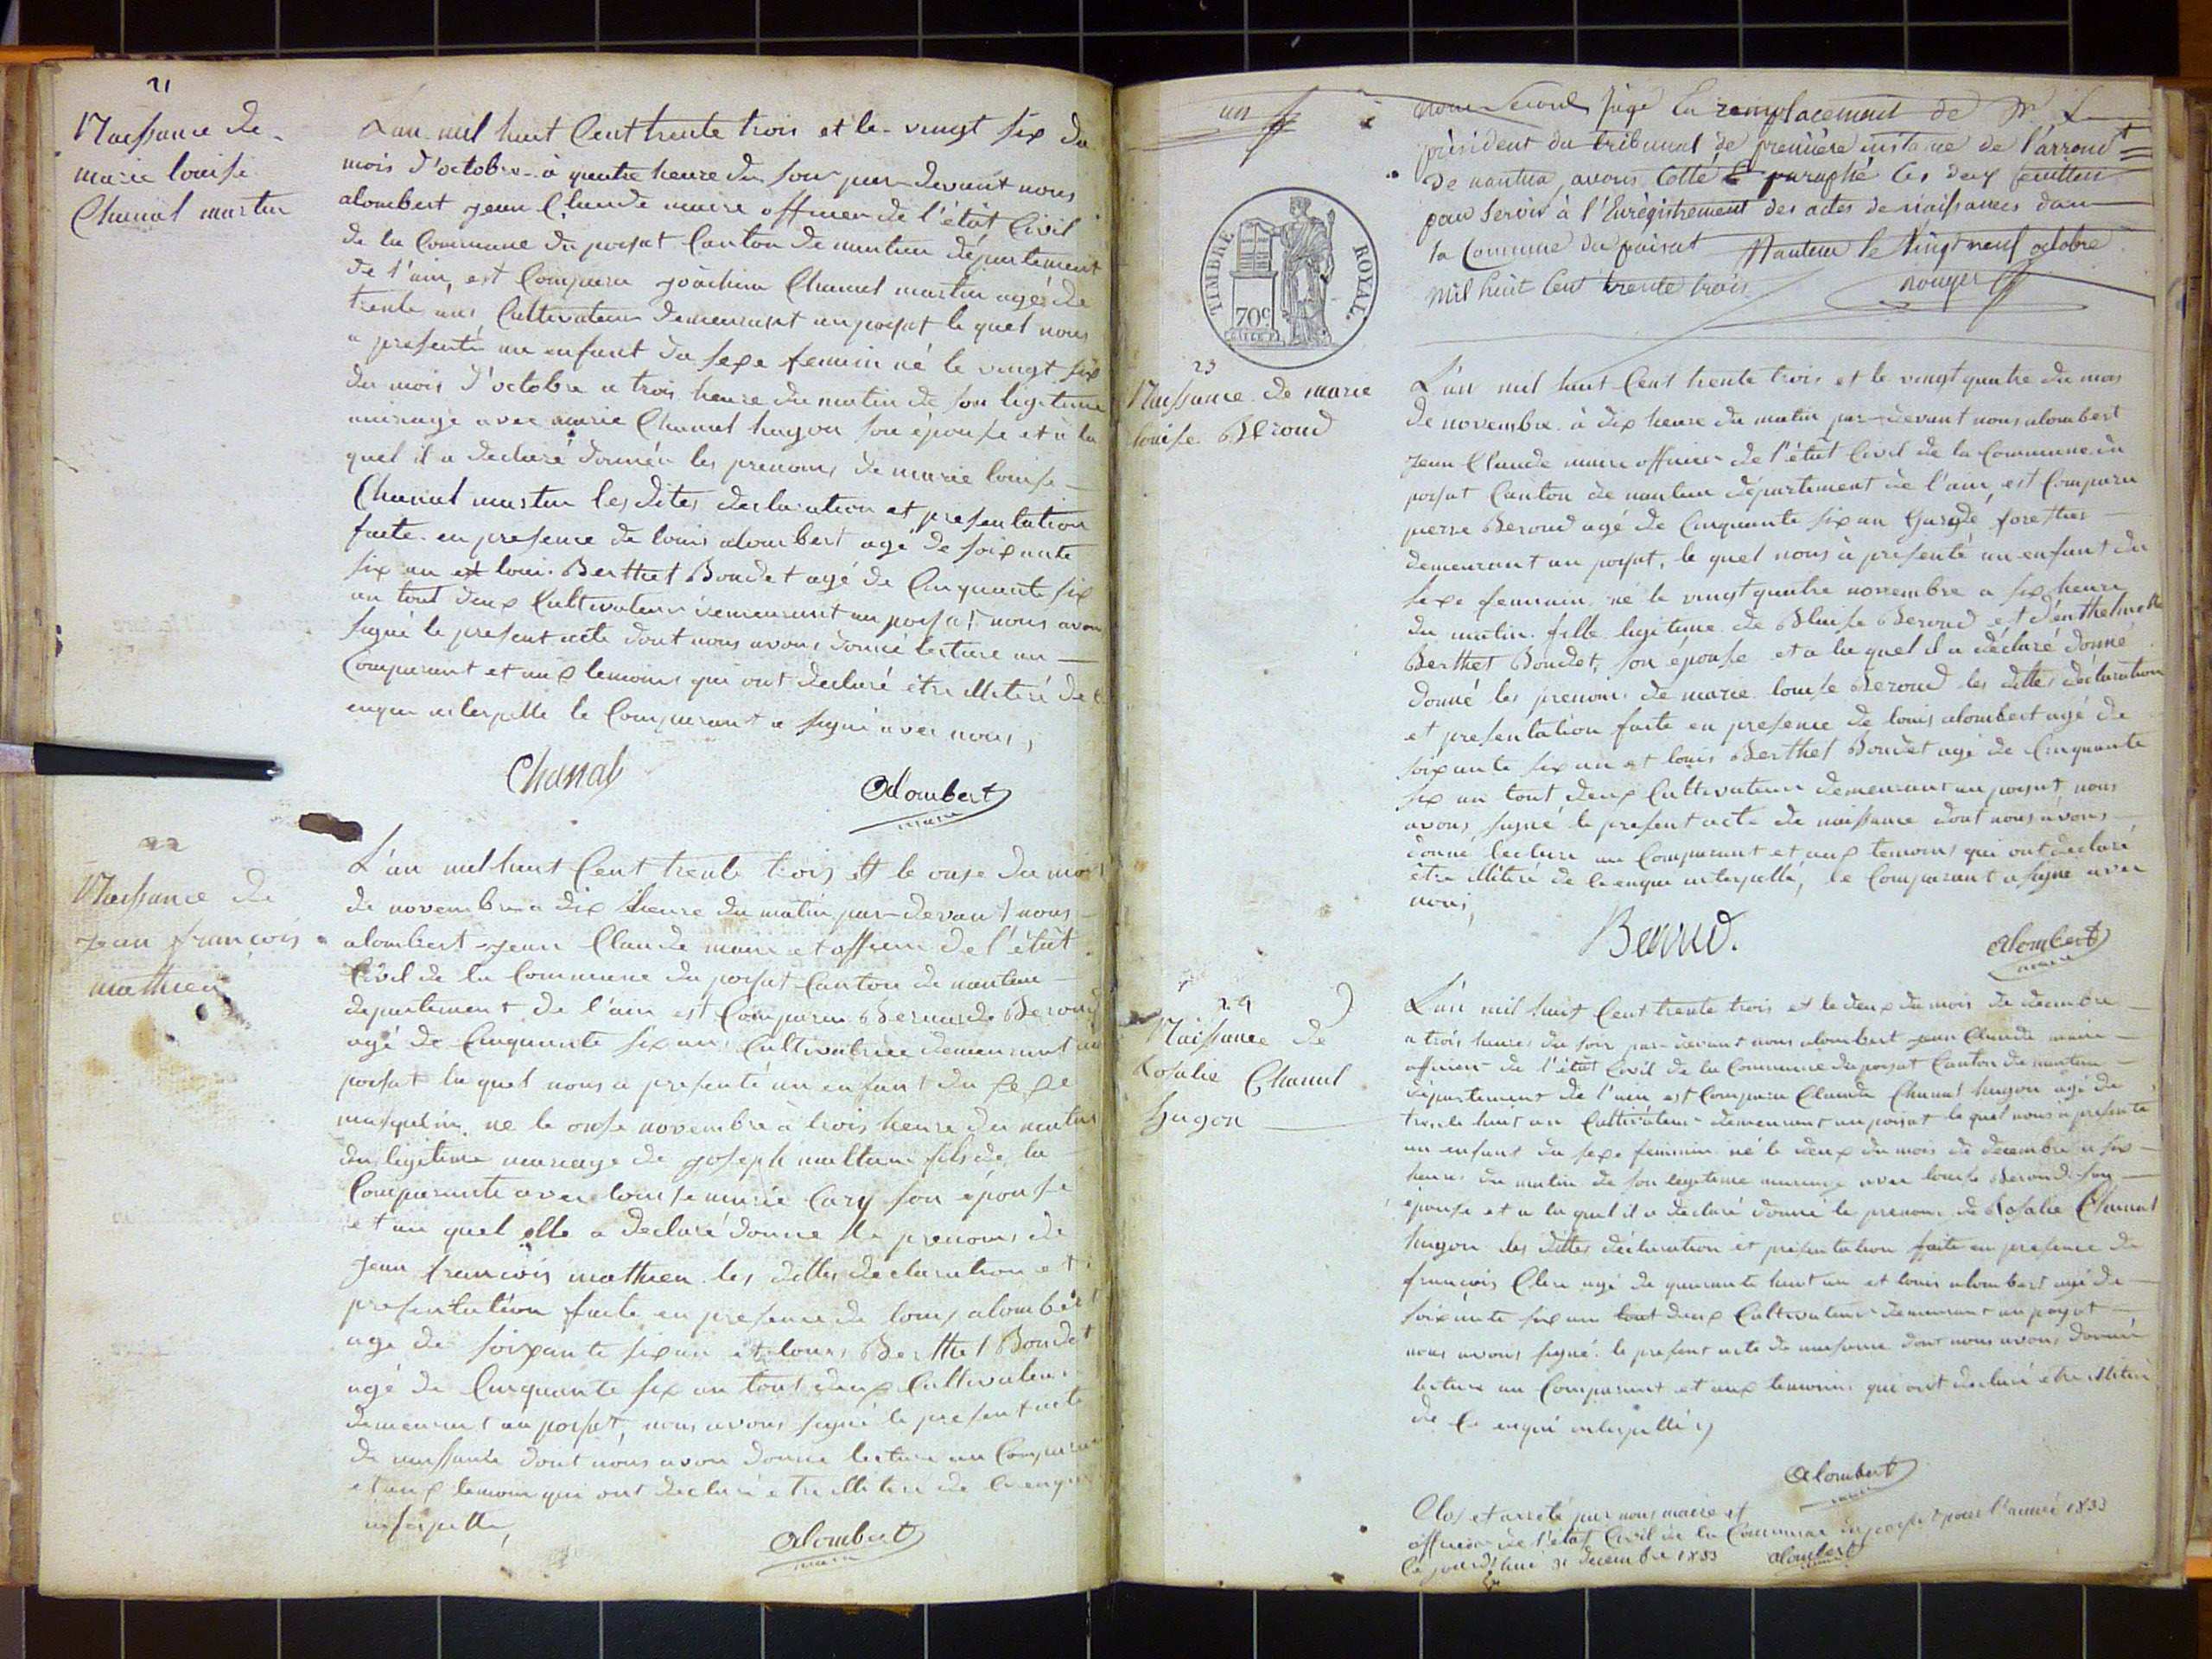 21
Naissance de
marie louise
Chanal martin
L'an mil huit Cent trente trois et le vingt six du
mois d'octobre à quatre heure du soir par devant nous
alombert jean Claude maire officier de l'état Civil
de la Commune du poisat Canton de nantua département
de l'ain, est Comparu joachim Chanal martin agé de
trente ans Cultivateur demeurant au poisat le quel nous
a presenté un enfant du sexe feminin né le vingt six
du mois d'octobre a trois heure du matin de son legitime
mariage avec marie Chanal hugon son épouse et à la
quel il a declaré donnér les prenoms de marie louise
Chanal martin les dites declaration et presentation
faite en presence de louis alombert agé de soixante
six an et louis Berthet Boudet agé de Cinquante six
an tout deux Cultivateur demeurant au poisat nous avon
signé le present acte dont nous avons donné lecture au
Comparant et aux temoins qui ont declaré être illitéré de
enquis interpellé le Comparant a signé avec nous,
Chanal
Alombert
maire
22
Naissance de
Jean françois
mathieu
L'an mil huit Cent trente trois et le onze du mois
de novembre a dix heure du matin par devant nous
alombert jean Claude maire et officier de l'état
Civil de la Commune du poisat Canton de nantua
departement de l'ain est Comparu Bernarde Beroud
agé de Cinquante six ans Cultivatrice demeurant au
poisat la quel nous a presenté un enfant du sexe
masqulin né le onse novembre à trois heure du matin
du légitime mariage de joseph mathieu fils de la
Comparante avec louise marie Cary son épouse
et au quel elle a declaré donné les prenoms de
Jean françois mathieu les dittes declaration et
presentation faite en presence de louis alombert
agé de soixante six an et louis Berthet Boudet
agé de Cinquante six an tout deux Cultivateur
demeurant au poisat, nous avons signé le present acte
de naissance dont nous avon donné lecture au Comparant
et aux temoin qui ont declaré etre illitéré de ce enquis
interpellé,
Alombert
maire
un
nous second juge en remplacement de Mr. Le
président du tribunal de première instance de l'arrondt
de nantua, avons Cotté & paraphé les deux feuilles
pour servir à l'Enregistrement des actes de naissances dans
la Commune du poisat Nantua le Vingt neuf octobre
mil huit Cent trente trois
rouyer
TIMBRE ROYAL.
70c
23
Naissance de marie
louise Beroud
L'an mil huit Cent trente trois et le vingt quatre du mois
de novembre à dix heure du matin par-devant nous alombert
jean Claude maire officier de l'état Civil de la Commune du
poisat Canton de nantua département de l'ain, est Comparu
pierre Beroud agé de Cinquante six an Garde forestier
demeurant au poisat, le quel nous à presenté un enfant du
sexe feminin né le vingt quatre novembre a six heure
du matin fille legitime de Blaise Beroud et d'enthelmette
Berthet Boudet, son épouse et a la quel il a déclaré donné
donné les prenoms de marie louise Beroud les dittes déclaration
et presentation faite en presence de louis alombert agé de
soixante six an et louis Berthet Boudet agé de Cinquante
six an tout deux Cultivateur demeurant au poisat, nous
avons signé le present acte de naissance dont nous avons
donné lecture au Comparant et aux temoins qui ont declaré
étre illitéré de ce enquis interpellé, le Comparant a signé avec
nous,
Beroud.
Alombert
maire
24
Naissance de
Rosalie Chanal
hugon
L'an mil huit Cent trente trois et le deux du mois de decembre
a trois heures du soir par-devant nous alombert jean Claude maire
officier de l'état Civil de la Commune du poisat Canton de nantua
département de l'ain est Comparu Claude Chanal hugon agé de
trente huit an Cultivateur demeurant au poisat le quel nous a presenté
un enfant du sexe feminin né le deux du mois de decembre a six
heures du matin de son legitime mariage avec louise Beroud son
épouse et a la quel il a declaré donné le prenoms de Rosalie Chanal
hugon les dittes déclaration et présentation faite en presence de
françois Clerc agé de quarante huit an et louis alombert agé de
soixante six ans tout deux Cultivateur demeurant au poisat
nous avons signé le present acte de naissance dont nous avons donné
lecture au Comparant et aux temoins qui ont declaré etre illitéré
de ce enqui interpellé,
Alombert
maire
Clos et arreté par nous maire et
officier de l'état Civil de la Commune du poisat pour l'année 1833
Ce jourd'hui 31 decembre 1833
alombert